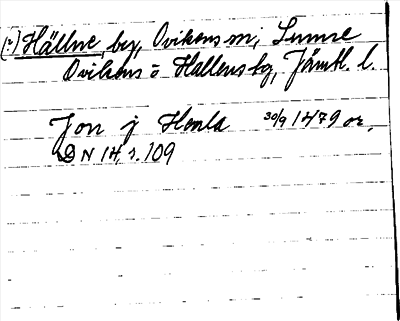 (?) Hällne, by, Ovikens sn, Sunne
Ovikens o Hallens tg, Jämtl. l.
Jon j Henla 30/9 1479 or.
DN 14, s. 109